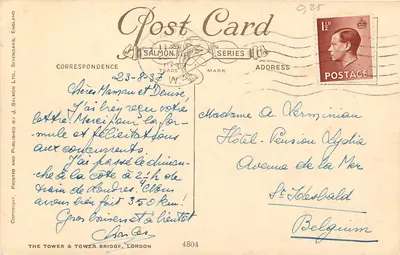 0,25
Post Card
SALMON SERIES
TRADE MARK
CORRESPONDENCE
ADDRESS
1½
POSTAGE
COPYRIGHT. PRINTED AND PUBLISHED BY J. SALMON LTD., SEVENOAKS, ENGLAND
23-8-37
Chères Maman et Denise,
J'ai bien reçu votre
lettre. Merci pour la for-
mule et félicitations
aux concurrents.
J'ai passé le diman-
che à la côte à 2½h de
train de Londres. Nous
avons bien fait 350 km!
Gros baisers et à bientôt
Charles
Madame A.
Hôtel-Pension Lydia
Avenue de la Mer
St Idesbald
Belgium
THE TOWER & TOWER BRIDGE, LONDON
4804